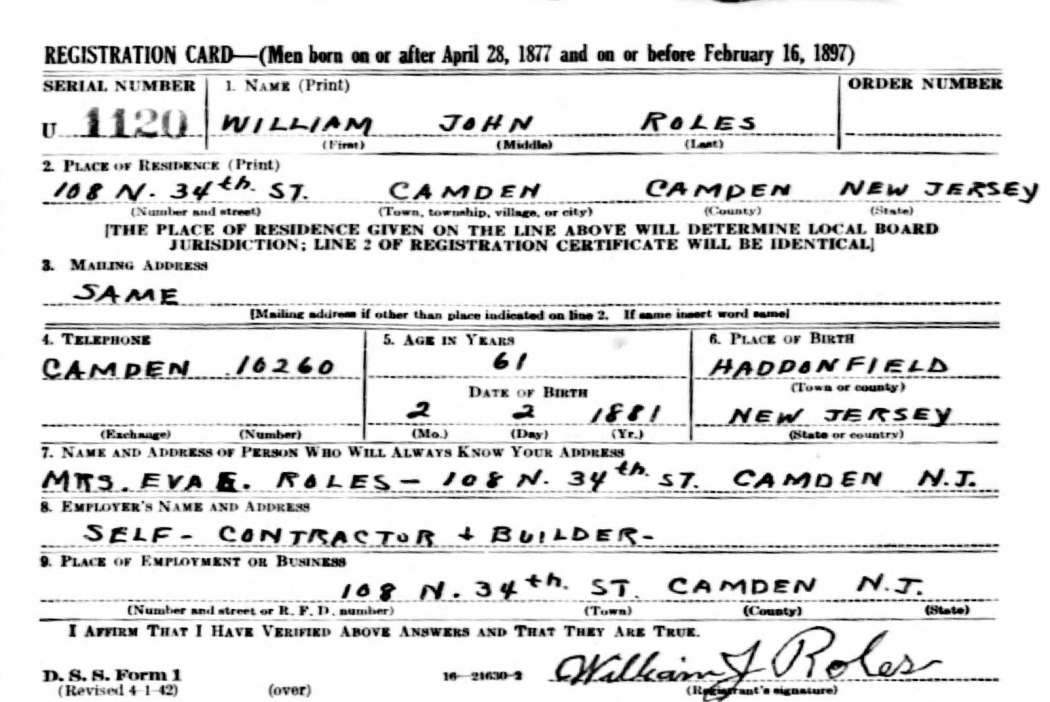 REGISTRATION CARD—(Men born on or after April 28, 1877 and on or before February 16, 1897)
SERIAL NUMBER 1. NAME (Print) ORDER NUMBER
U 1120 WILLIAM JOHN ROLES
(First) (Middle) (Last)
2. PLACE OF RESIDENCE (Print)
108 N. 34th. ST. CAMDEN CAMDEN NEW JERSEY
(Number and street) (Town, township, village, or city) (County) (State)
[THE PLACE OF RESIDENCE GIVEN ON THE LINE ABOVE WILL DETERMINE LOCAL BOARD
JURISDICTION; LINE 2 OF REGISTRATION CERTIFICATE WILL BE IDENTICAL]
3. MAILING ADDRESS
SAME
[Mailing address if other than place indicated on line 2. If same insert word same]
4. TELEPHONE 5. AGE IN YEARS 6. PLACE OF BIRTH
CAMDEN 10260 61 HADDONFIELD
(Town or county)
DATE OF BIRTH
2 2 1881 NEW JERSEY
(Exchange) (Number) (Mo.) (Day) (Yr.) (State or country)
7. NAME AND ADDRESS OF PERSON WHO WILL ALWAYS KNOW YOUR ADDRESS
MRS. EVA E. ROLES - 108 N. 34th. ST. CAMDEN N.J.
8. EMPLOYER'S NAME AND ADDRESS
SELF - CONTRACTOR + BUILDER -
9. PLACE OF EMPLOYMENT OR BUSINESS
108 N. 34th. ST. CAMDEN N.J.
(Number and street or R. F. D. number) (Town) (County) (State)
I AFFIRM THAT I HAVE VERIFIED ABOVE ANSWERS AND THAT THEY ARE TRUE.
D. S. S. Form 1 16—21630-2 William J Roles
(Revised 4-1-42) (over) (Registrant's signature)